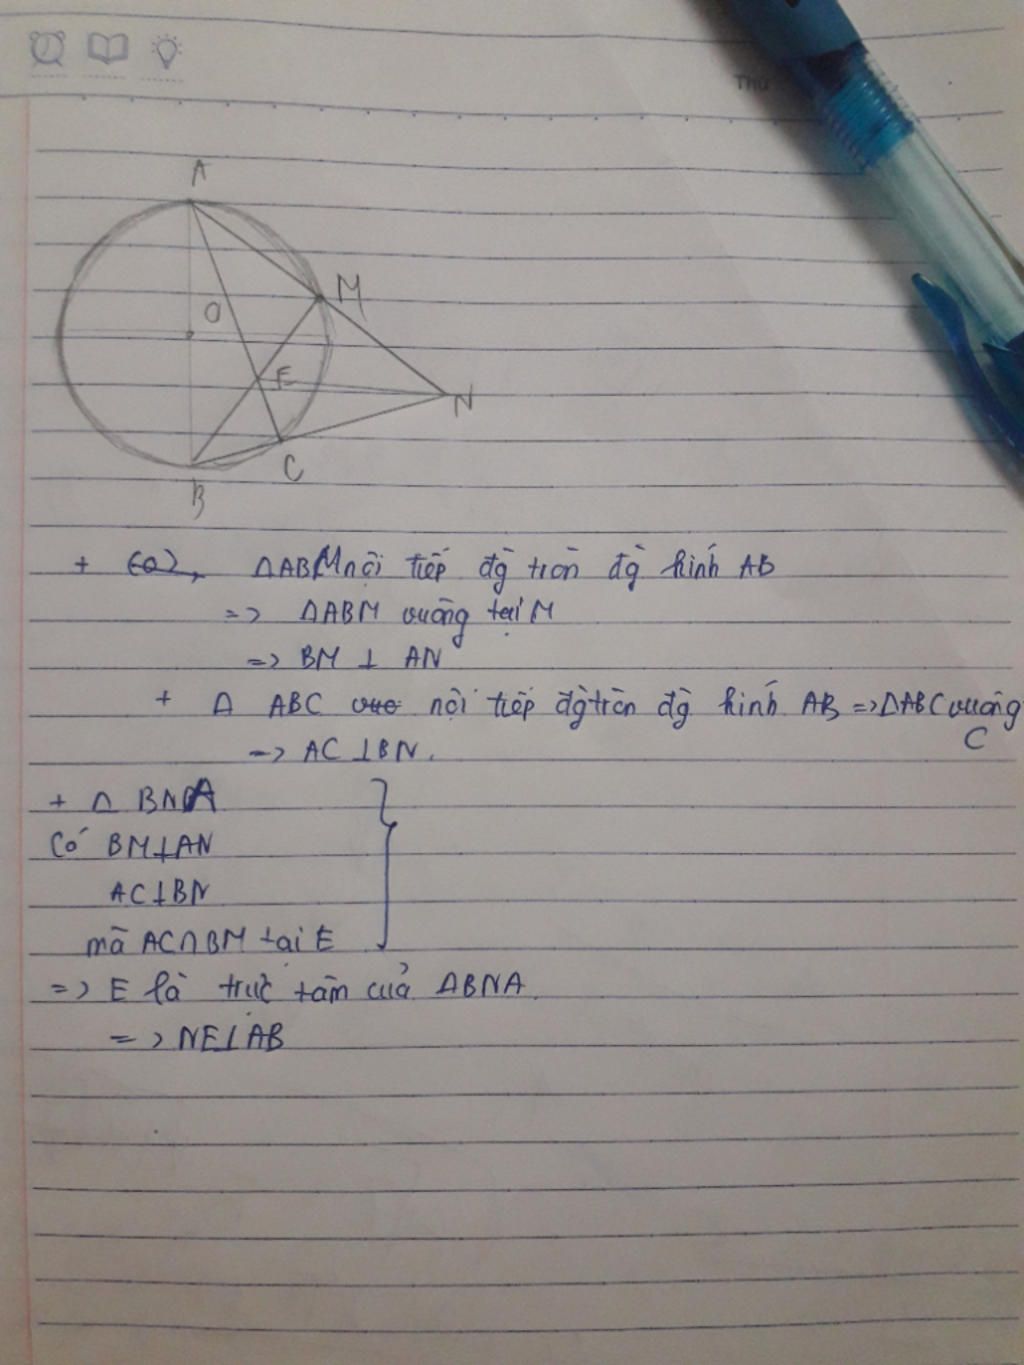 Thứ
A
M
O
E
N
C
B
+ (O), ΔABM nội tiếp đg tròn đg kính AB
=> ΔABM vuông tại M
=> BM ⊥ AN
+ Δ ABC nội tiếp đgtròn đg kính AB => ΔABC vuông
C
=> AC ⊥ BN.
+ Δ BNA
Có BM⊥AN
AC⊥BN
mà AC∩BM tại E
=> E là trực tâm của ΔBNA
=> NE⊥AB